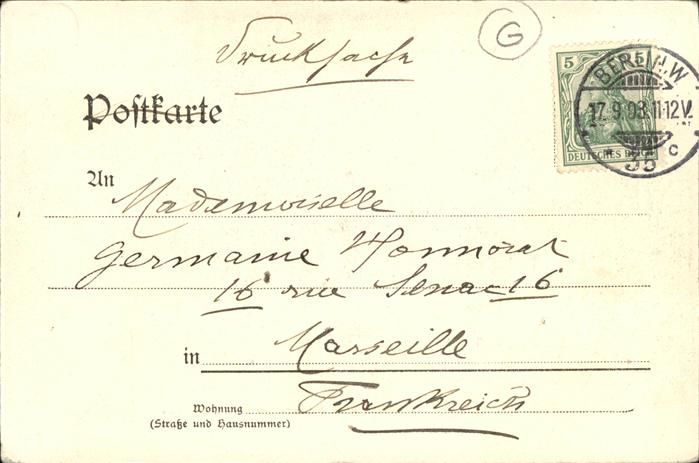 Drucksache
G
Postkarte
5 5
BERLIN.W
17.9.03.11-12V.
DEUTSCHES REICH
35 c
An Mademoiselle
Germaine Honnorat
16 rue Senac 16
in Marseille
Wohnung Frankreich
(Straße und Hausnummer)